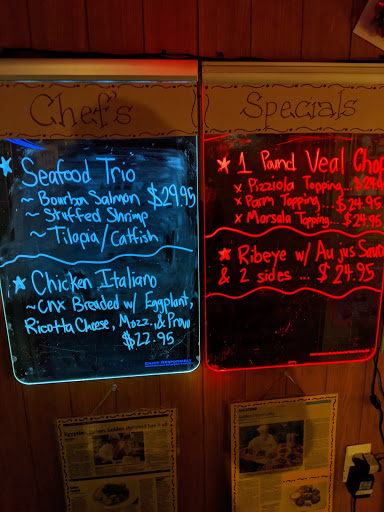 Chef's
Specials
★ Seafood Trio
~ Bourbon Salmon $29.95
~ Stuffed Shrimp
~ Tilapia/Catfish
★ Chicken Italiano
~ Chx Breaded w/ Eggplant,
Ricotta Cheese, Mozz., & Provo
$22.95
★ 1 Pound Veal Chop
x Pizziola Topping... $24.9
x Parm Topping... $24.95
x Marsala Topping.. $24.95
★ Ribeye w/ Au jus Sauce
& 2 sides ... $24.95